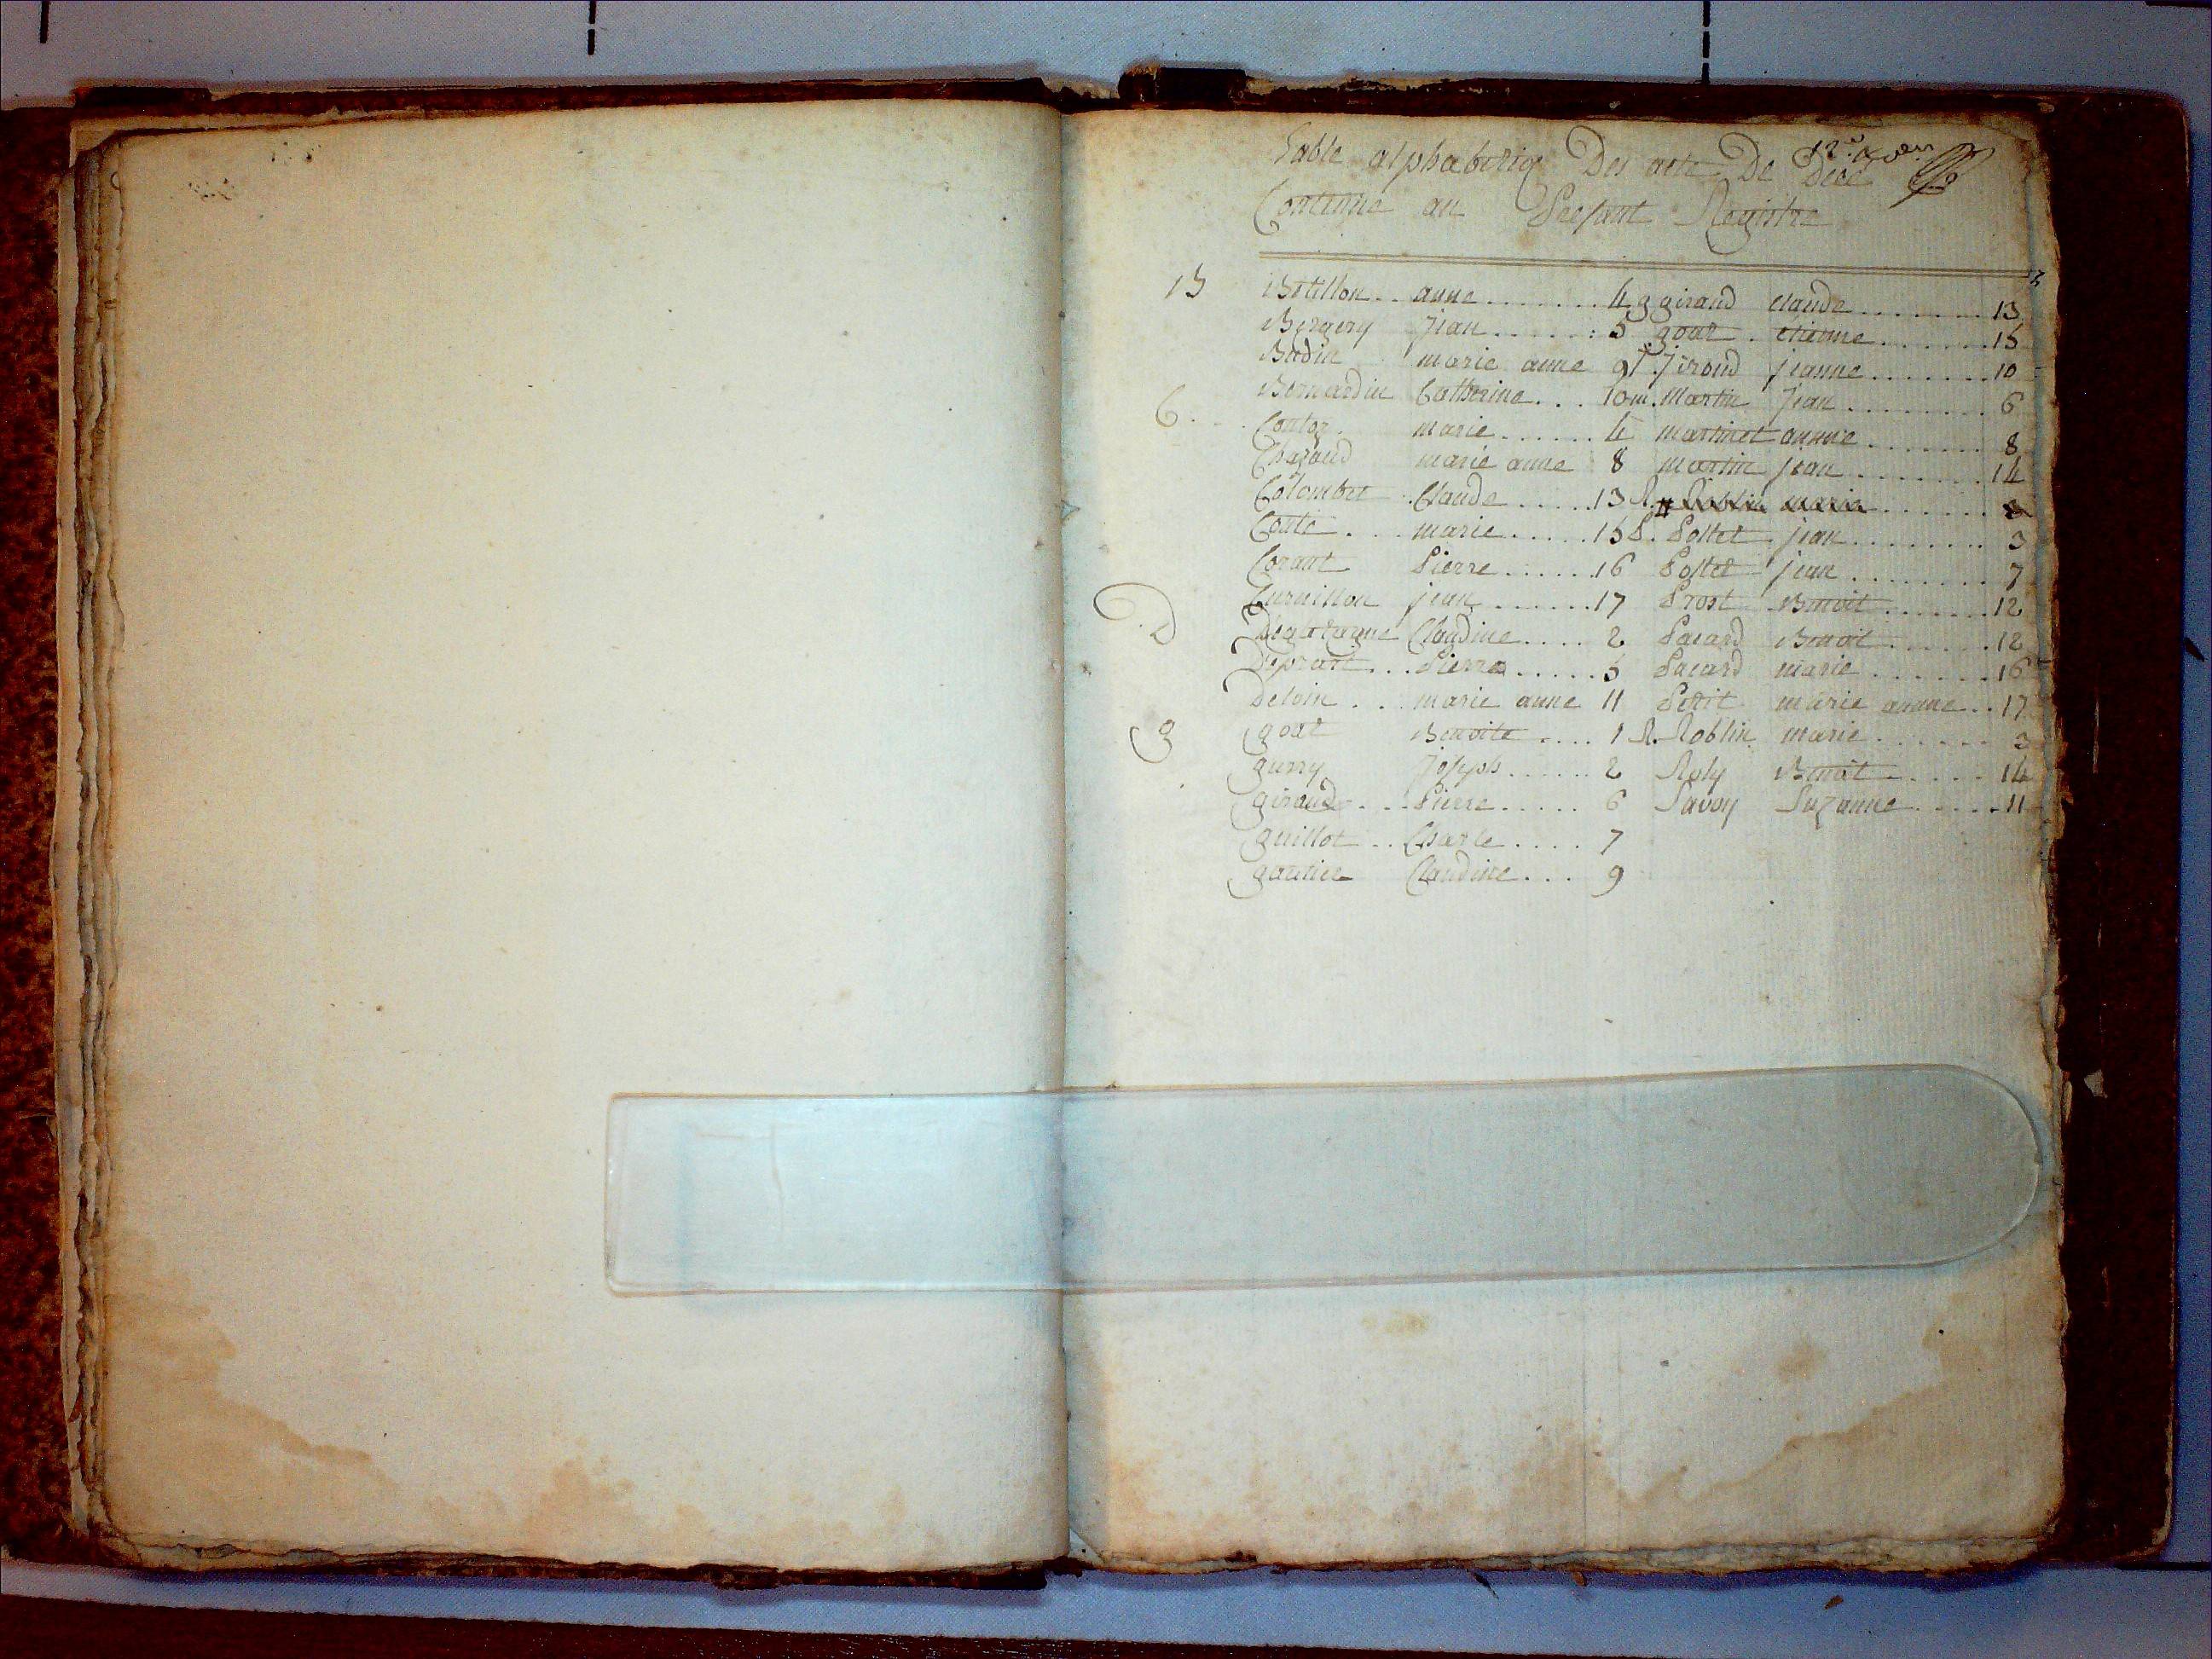 Table alphabetiq Des acte De Dece
Contenue au Present Registre
B Botillon .. anne ....... 4
Bergery jean ...... 5
Budin marie anne 9
Bernardin Catherine ... 10
C Contor marie ...... 4
Charaud marie anne 8
Colombet Claude ..... 13
Conte .. marie ..... 15
Corant Pierre ...... 16
Curaillon jean ....... 17
D Claudine .... 2
Deprast ... Pierre ..... 5
Deloin .. marie anne 11
g goat Benoite .... 1
gurry joseph ...... 2
giraud .. Pierre ..... 6
guillot .. Charle .... 7
gautier Claudine ... 9
g giraud claude ....... 13
goat . etienne ....... 15
j. jiroud jeanne ....... 10
m. martin jean ........ 6
martinet annne ....... 8
martin jean ........ 14
R. Roblin marie
P. Pottet jean ........ 3
Pottet jean ........ 7
Prost Benoit ....... 12
Pacard Benoit ...... 12
Pacard marie ....... 16
Petit marie annne .. 17
R. Roblin marie ...... 3
Benoit ..... 14
Savoy Suzanne ..... 11